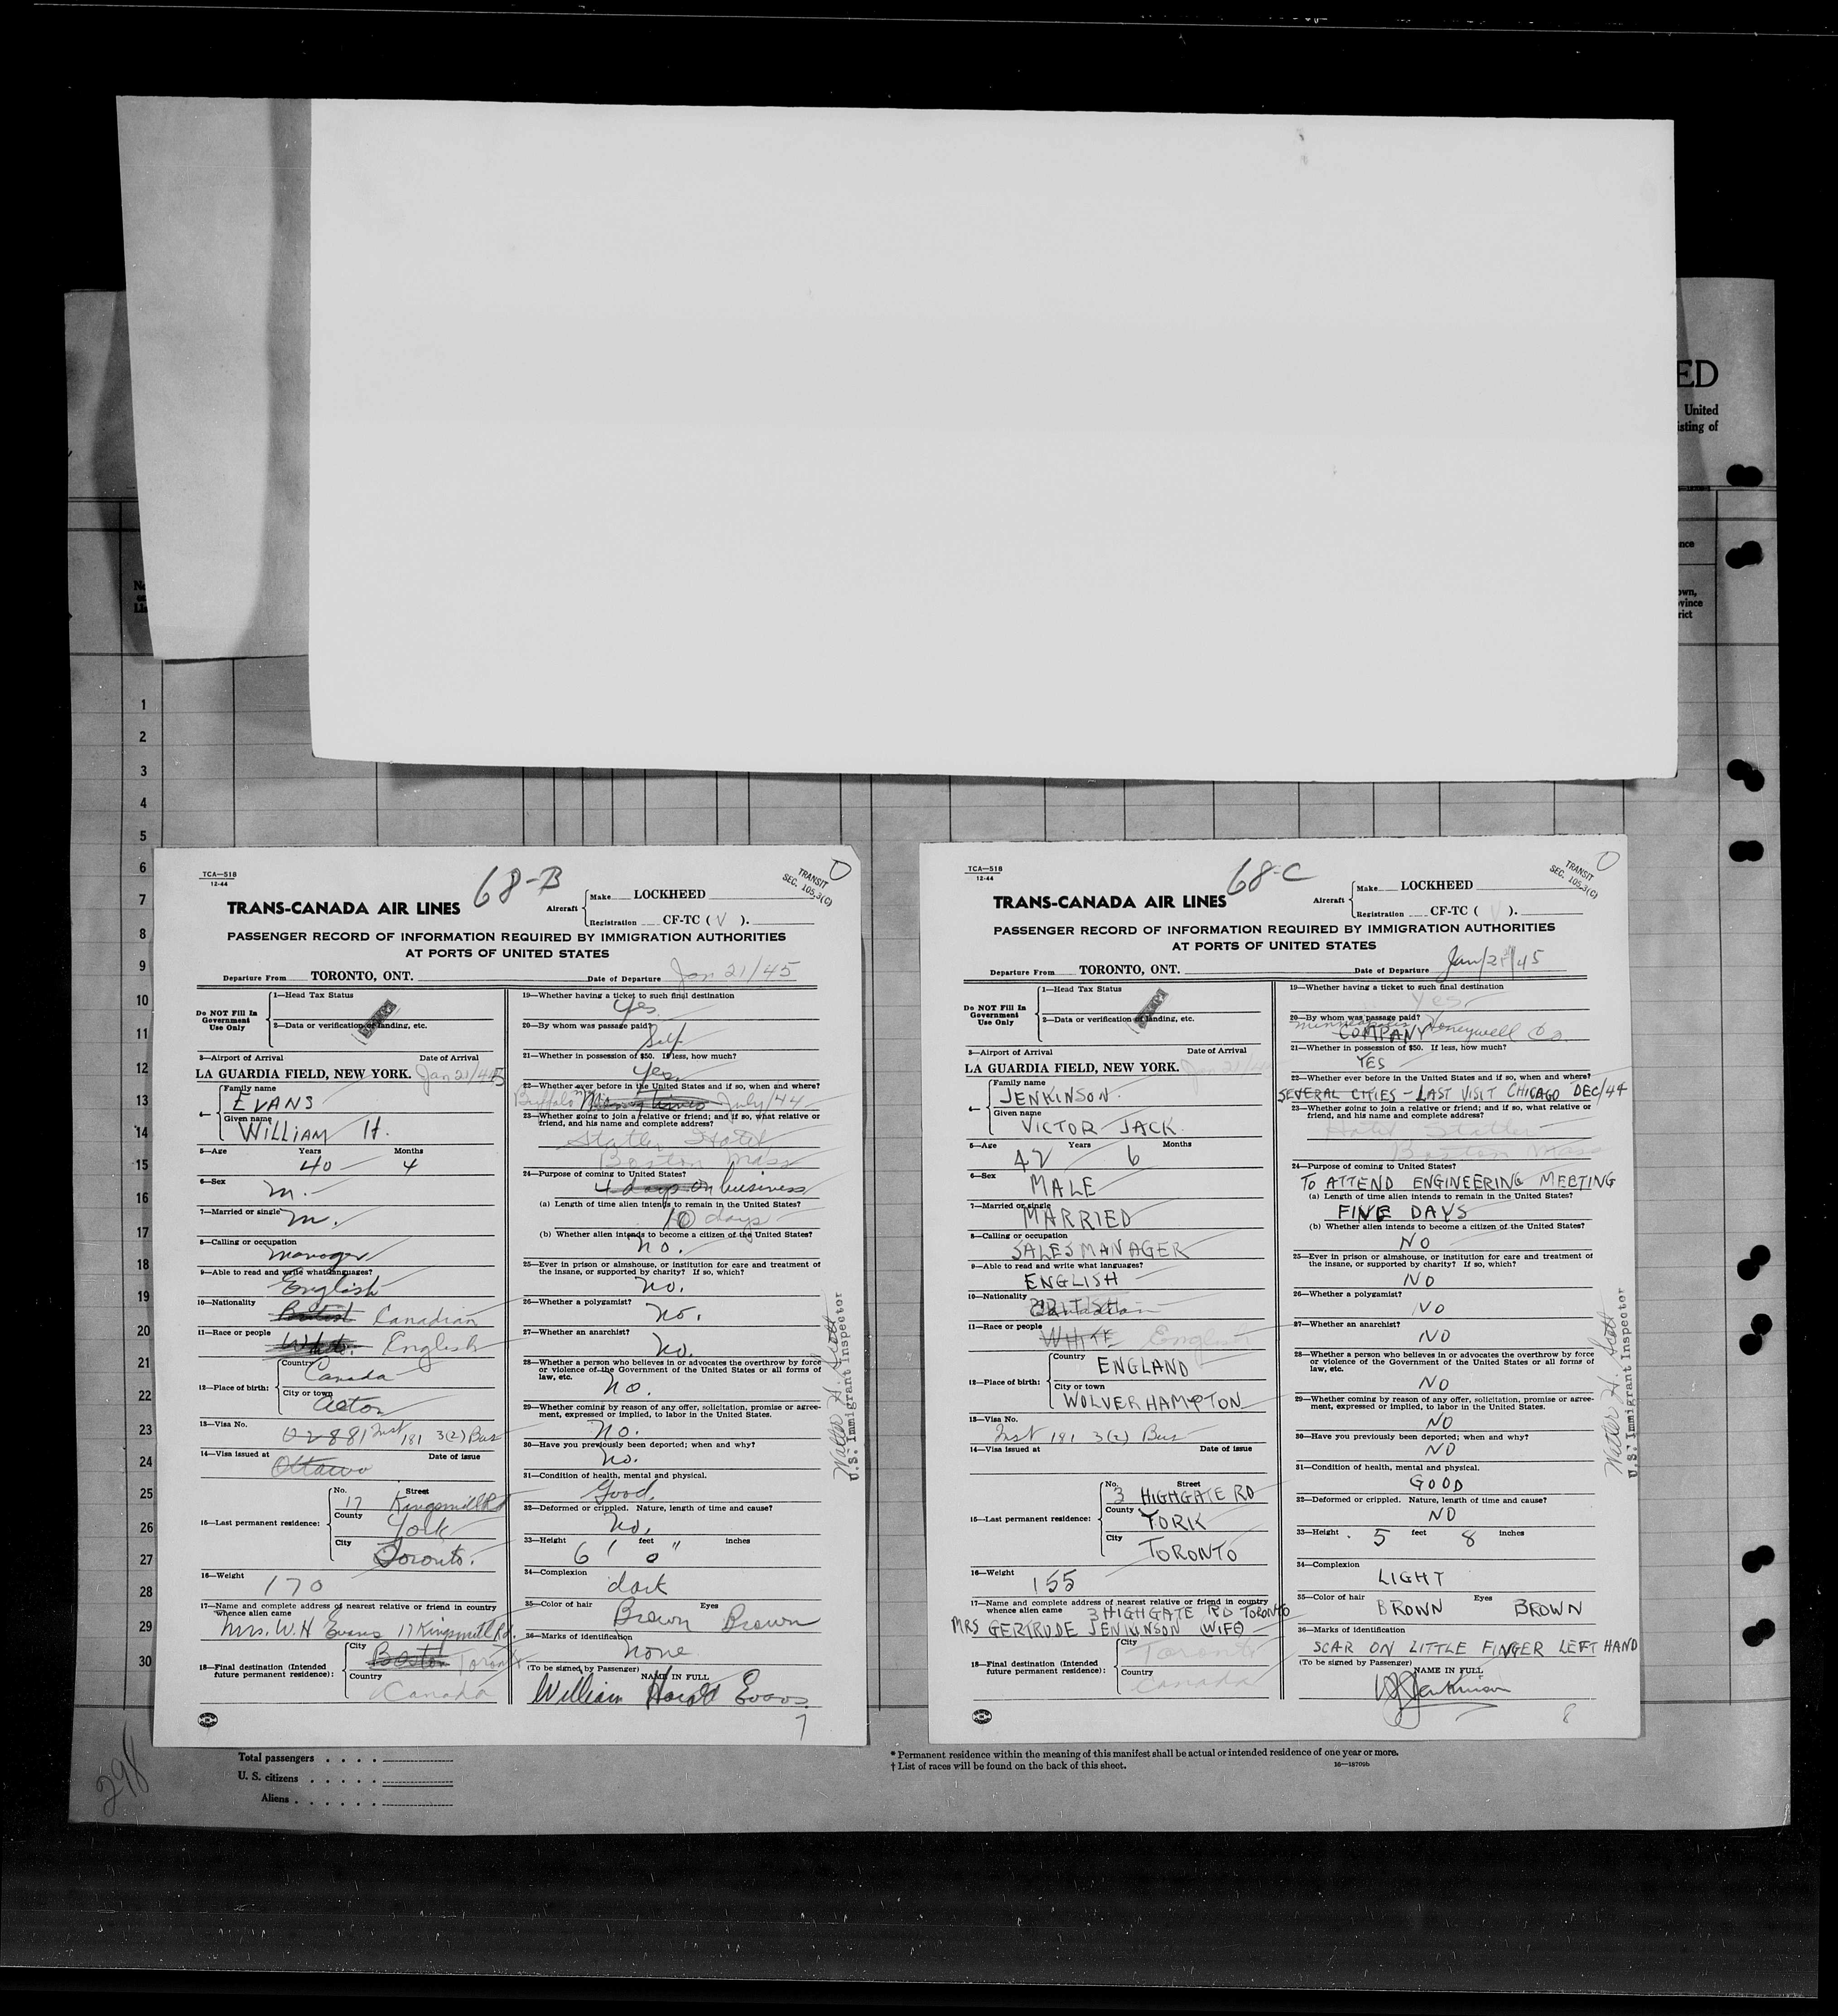 ED
United
isting of
nce
own,
vince
rict
1
2
3
4
5
6
7
8
9
10
11
12
13
14
15
16
17
18
19
20
21
22
23
24
25
26
27
28
29
30
TCA—518
12-44
68-B
TRANSIT
SEC. 105.3(C)
0
TRANS-CANADA AIR LINES
Aircraft
Make LOCKHEED
Registration CF-TC ( V ).
PASSENGER RECORD OF INFORMATION REQUIRED BY IMMIGRATION AUTHORITIES
AT PORTS OF UNITED STATES
Departure From TORONTO, ONT. Date of Departure Jan 21/45
Do NOT Fill In
Government
Use Only
1—Head Tax Status
2—Data or verification of landing, etc.
3—Airport of Arrival Date of Arrival
LA GUARDIA FIELD, NEW YORK. Jan 21/45
Family name
EVANS
Given name
WILLIAM H.
5—Age Years Months
40 4
6—Sex
m.
7—Married or single
m.
8—Calling or occupation
manager
9—Able to read and write what languages?
English
10—Nationality
British Canadian
11—Race or people
White English
12—Place of birth:
Country
Canada
City or town
Acton
13—Visa No.
02881 Inst 181 3(2) Bus
14—Visa issued at Date of issue
Ottawa
15—Last permanent residence:
No. Street
17 Kingsmill Rd
County
York
City
Toronto.
16—Weight
170
17—Name and complete address of nearest relative or friend in country
whence alien came
Mrs. W. H Evans 17 Kingsmill Rd.
18—Final destination (Intended
future permanent residence):
City
Boston Toronto
Country
Canada
19—Whether having a ticket to such final destination
Yes.
20—By whom was passage paid?
Self
21—Whether in possession of $50. If less, how much?
Yes.
22—Whether ever before in the United States and if so, when and where?
Buffalo Many times July/44
23—Whether going to join a relative or friend; and if so, what relative or
friend, and his name and complete address?
Statler Hotel
Boston Mass
24—Purpose of coming to United States?
4 days on business
(a) Length of time alien intends to remain in the United States?
10 days
(b) Whether alien intends to become a citizen of the United States?
no.
25—Ever in prison or almshouse, or institution for care and treatment of
the insane, or supported by charity? If so, which?
no.
26—Whether a polygamist?
no.
27—Whether an anarchist?
no.
28—Whether a person who believes in or advocates the overthrow by force
or violence of the Government of the United States or all forms of
law, etc.
no.
29—Whether coming by reason of any offer, solicitation, promise or agree-
ment, expressed or implied, to labor in the United States.
no.
30—Have you previously been deported; when and why?
no.
31—Condition of health, mental and physical.
Good.
32—Deformed or crippled. Nature, length of time and cause?
no.
33—Height feet inches
6 ' 0 "
34—Complexion
dark
35—Color of hair Eyes
Brown Brown
36—Marks of identification
none
(To be signed by Passenger) NAME IN FULL
William Harold Evans.
7
Walter H. Scott
U.S. Immigrant Inspector
TCA—518
12-44
68-C
TRANSIT
SEC. 105.3(C)
0
TRANS-CANADA AIR LINES
Aircraft
Make LOCKHEED
Registration CF-TC ( V ).
PASSENGER RECORD OF INFORMATION REQUIRED BY IMMIGRATION AUTHORITIES
AT PORTS OF UNITED STATES
Departure From TORONTO, ONT. Date of Departure Jan/21/45
Do NOT Fill In
Government
Use Only
1—Head Tax Status
2—Data or verification of landing, etc.
3—Airport of Arrival Date of Arrival
LA GUARDIA FIELD, NEW YORK. Jan 21/45
Family name
JENKINSON.
Given name
VICTOR JACK.
5—Age Years Months
42 6
6—Sex
MALE
7—Married or single
MARRIED
8—Calling or occupation
SALES MANAGER
9—Able to read and write what languages?
ENGLISH
10—Nationality
BRITISH Canadian
11—Race or people
WHITE English
12—Place of birth:
Country
ENGLAND
City or town
WOLVERHAMPTON
13—Visa No.
Inst 181 3(2) Bus
14—Visa issued at Date of issue
15—Last permanent residence:
No. Street
3 HIGHGATE RD
County
YORK
City
TORONTO
16—Weight
155
17—Name and complete address of nearest relative or friend in country
whence alien came 3 HIGHGATE RD TORONTO
MRS GERTRUDE JENKINSON (WIFE)
18—Final destination (Intended
future permanent residence):
City
Toronto
Country
Canada
19—Whether having a ticket to such final destination
Yes
20—By whom was passage paid?
Minneapolis Honeywell Co.
COMPANY
21—Whether in possession of $50. If less, how much?
YES
22—Whether ever before in the United States and if so, when and where?
SEVERAL CITIES - LAST VISIT CHICAGO DEC/44
23—Whether going to join a relative or friend; and if so, what relative or
friend, and his name and complete address?
Hotel Statler
Boston Mass
24—Purpose of coming to United States?
TO ATTEND ENGINEERING MEETING
(a) Length of time alien intends to remain in the United States?
FIVE DAYS
(b) Whether alien intends to become a citizen of the United States?
NO
25—Ever in prison or almshouse, or institution for care and treatment of
the insane, or supported by charity? If so, which?
NO
26—Whether a polygamist?
NO
27—Whether an anarchist?
NO
28—Whether a person who believes in or advocates the overthrow by force
or violence of the Government of the United States or all forms of
law, etc.
NO
29—Whether coming by reason of any offer, solicitation, promise or agree-
ment, expressed or implied, to labor in the United States.
NO
30—Have you previously been deported; when and why?
NO
31—Condition of health, mental and physical.
GOOD
32—Deformed or crippled. Nature, length of time and cause?
NO
33—Height 5 feet 8 inches
34—Complexion
LIGHT
35—Color of hair BROWN Eyes BROWN
36—Marks of identification
SCAR ON LITTLE FINGER LEFT HAND
(To be signed by Passenger) NAME IN FULL
VJ Jenkinson
8
Walter H. Scott
U.S. Immigrant Inspector
298
Total passengers . . . .
U. S. citizens . . . . .
Aliens . . . . . .
* Permanent residence within the meaning of this manifest shall be actual or intended residence of one year or more.
† List of races will be found on the back of this sheet.